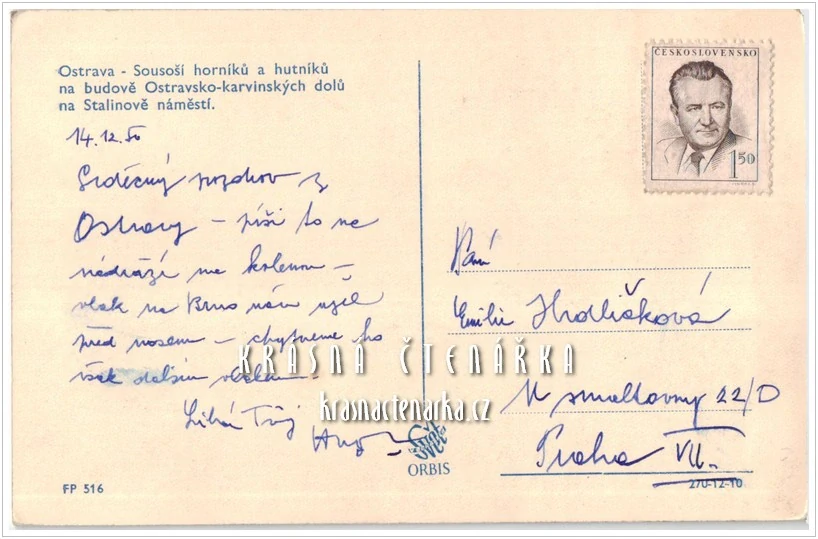 Ostrava - Sousoší horníků a hutníků
na budově Ostravsko-karvinských dolů
na Stalinově náměstí.
14.12.50
Srdečný pozdrav z
Ostravy – píši to na
nádraží na kolenou –
vlak na Brno nám ujel
před nosem – chytneme ho
však dalším vlakem.
Líbá Tvůj
ČESKOSLOVENSKO
1 50
Paní
Emilie Hrdličková
U smaltovny 22/D
Praha VII.
KRÁSNÁ ČTENÁŘKA
krasnactenarka.cz
ORBIS
FP 516
270-12-10